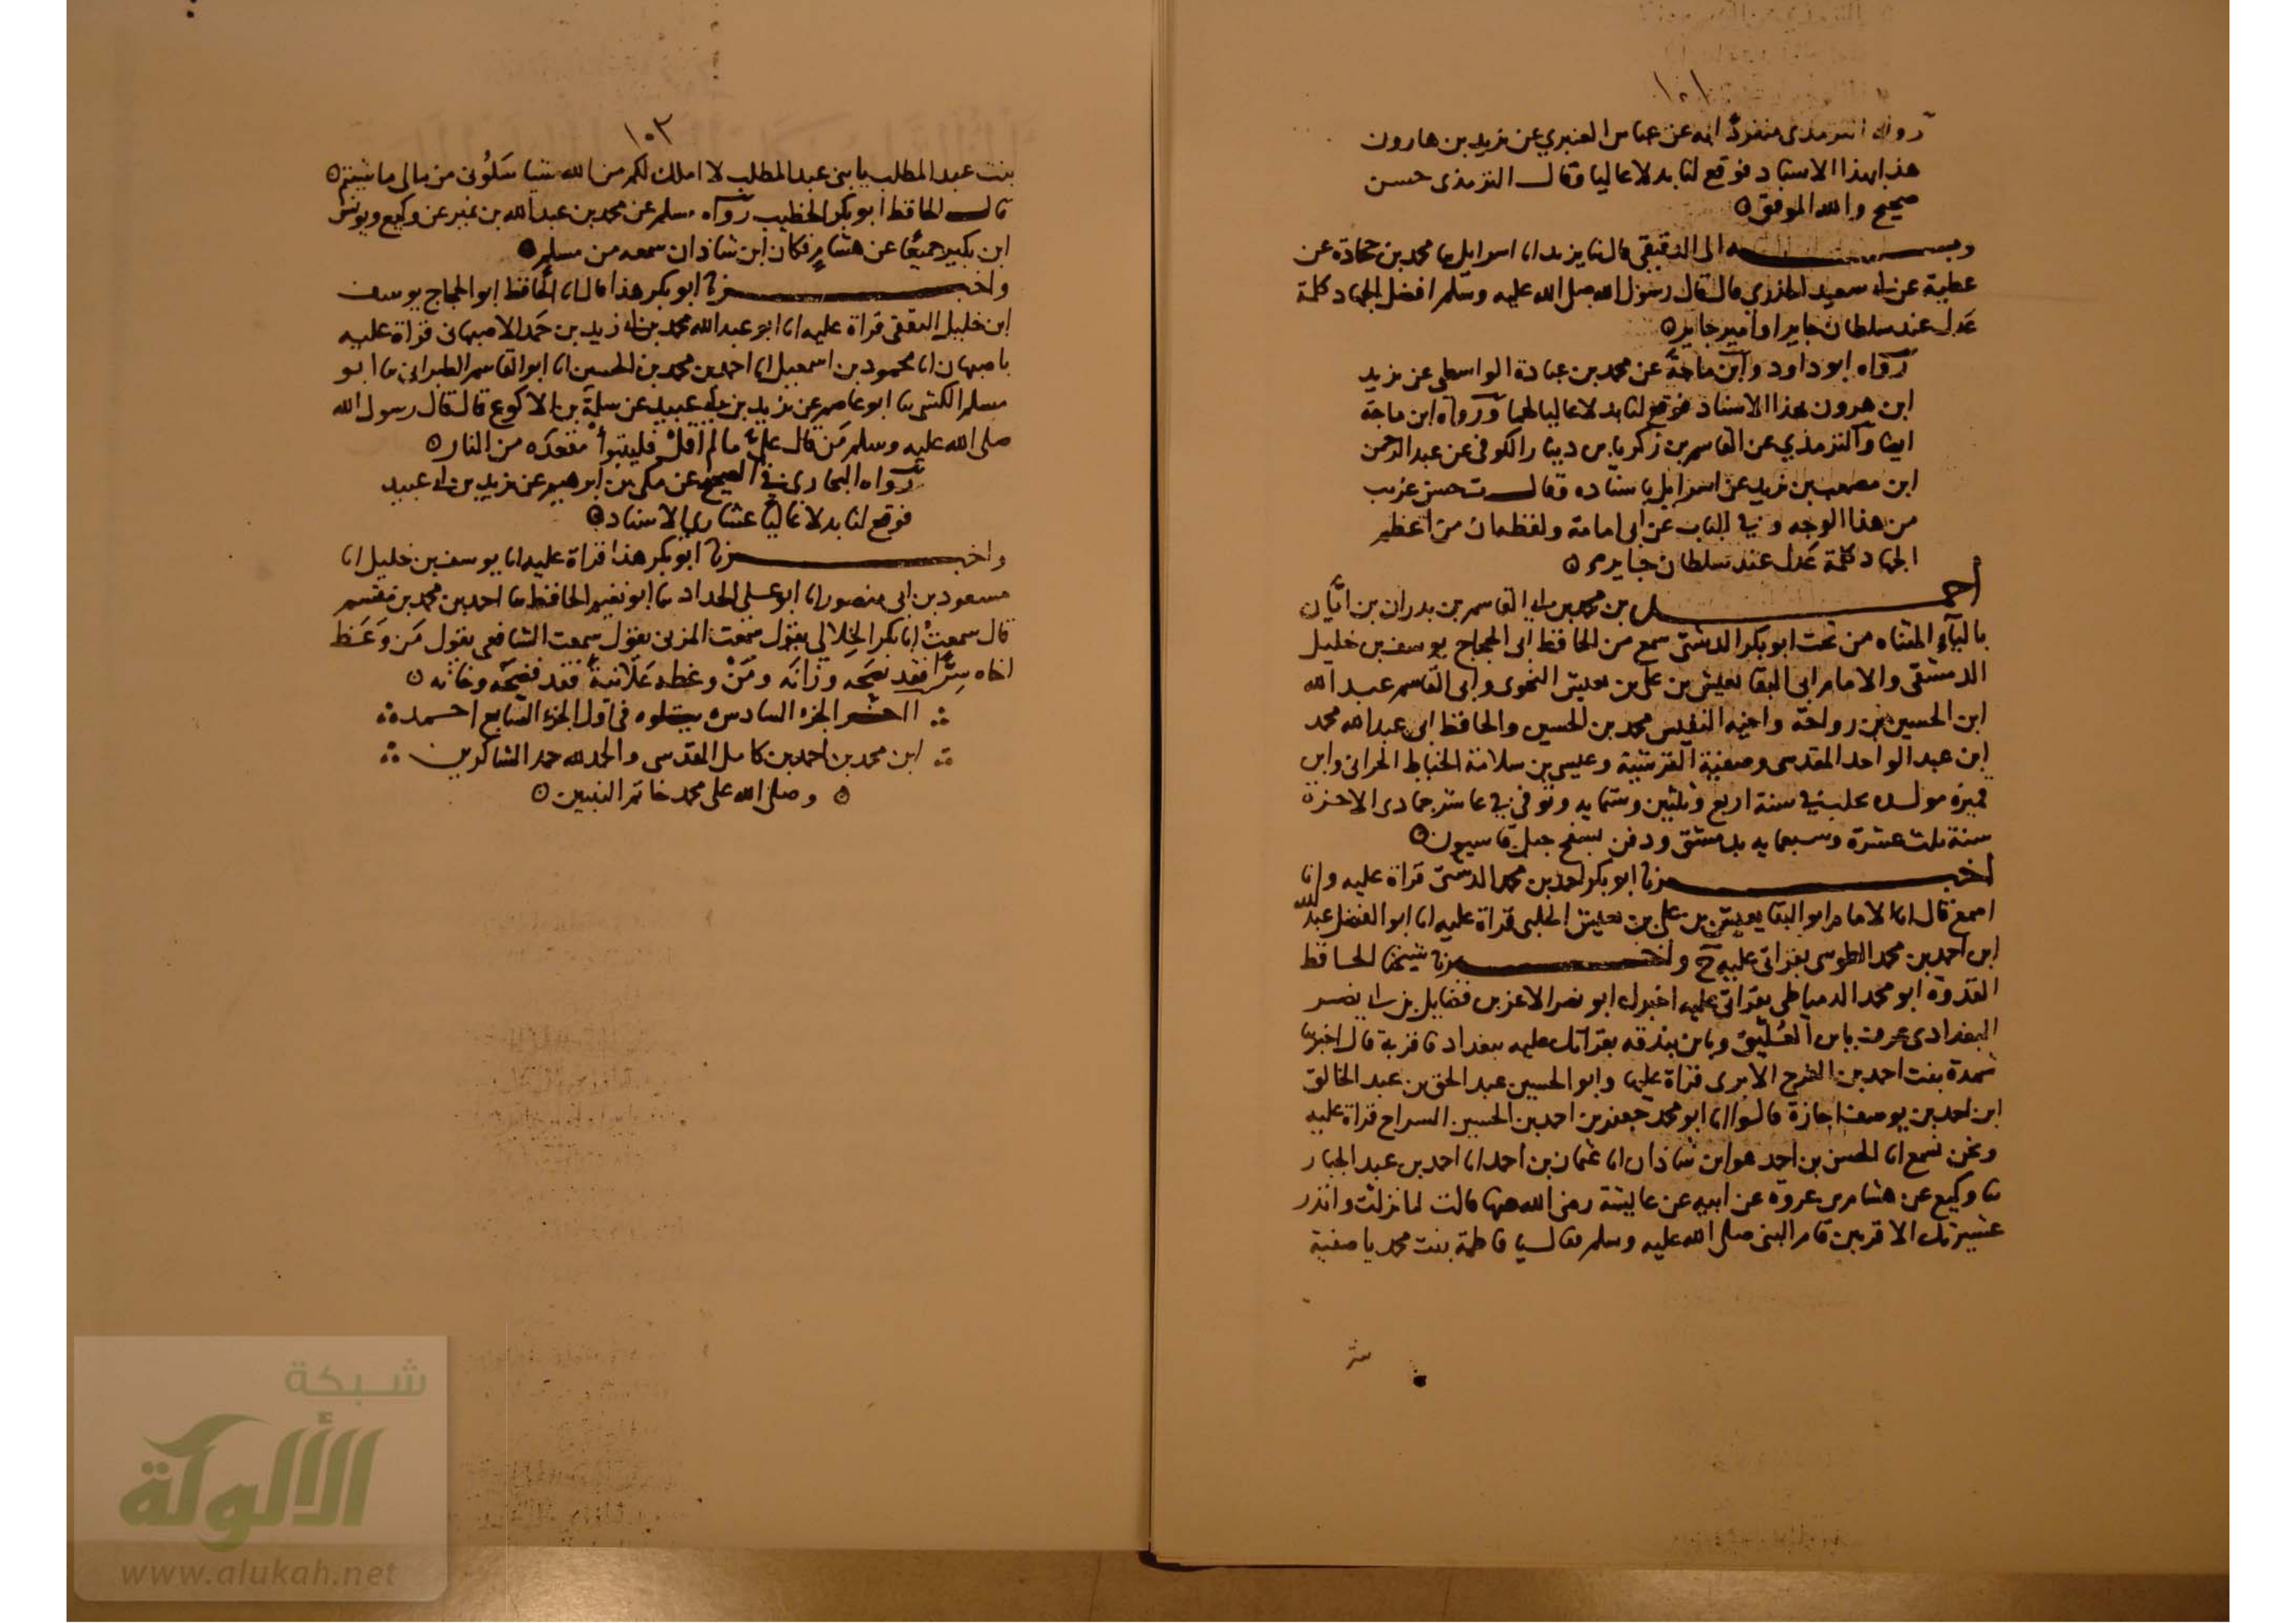 ١٠١
رواه الترمذي منفردا به عن عباس العنبري عن يزيد بن هارون
هذا بهذا الاسناد فوقع لنا بدلا عاليا وقال الترمذي حسن
صحيح والله الموفق ۝
وبـــه الى الدقيقي قال نا يزيد انا اسرايل نا محمد بن جحادة عن
عطية عن ابي سعيد الخدري قال قال رسول الله صلى الله عليه وسلم افضل الجهاد كلمة
عدل عند سلطان جاير او امير جاير ۝
رواه ابو داود وابن ماجة عن محمد بن عبادة الواسطي عن يزيد
ابن هرون بهذا الاسناد فوقع لنا بدلا عاليا لهما ورواه ابن ماجة
ايضا والترمذي عن القاسم بن زكريا بن دينار الكوفي عن عبد الرحمن
ابن مصعب بن يزيد عن اسرايل باسناده وقال ت حسن غريب
من هذا الوجه وفي الباب عن ابي امامة ولفظهما ان من اعظم
الجهاد كلمة عدل عند سلطان جاير ۝
احمـــد بن محمد بن ابي القاسم بن بدران بن ايّان
بالياء المثناه من تحت ابو بكر الدشتي سمع من الحافظ ابي الحجاج يوسف بن خليل
الدمشقي والامام ابي البقا يعيش بن علي بن يعيش النحوي وابي القاسم عبد الله
ابن الحسين بن رواحة واخيه النفيس محمد بن الحسين والحافظ ابي عبد الله محمد
ابن عبد الواحد المقدسي وصفية القرشية وعيسى بن سلامة الخياط الحراني وابن
قميرة مولده بحلب في سنة اربع وثلثين وستمايه وتوفي في عاشر جمادى الاخرة
سنة ثلث عشرة وسبعمايه بدمشق ودفن بسفح جبل قاسيون ۝
اخبـــرنا ابو بكر احمد بن محمد الدشتي قراة عليه وانا
اسمع قال انا الامام ابو البقا يعيش بن علي بن يعيش الحلبي قراة عليه انا ابو الفضل عبد الله
ابن احمد بن محمد الطوسي بقراتي عليه ح واخبـــرنا شيخنا الحافظ
القدوة ابو محمد الدمياطي بقراتي عليه اخبرك ابو نصر الاعز بن فضايل بن ابي نصر
البغدادي عرف بابن العُلّيق وبابن بندقه بقراتك عليه ببغداد فاقر به قال اخبرتنا
شهدة بنت احمد بن الفرج الابري قراة عليها وابو الحسين عبد الحق بن عبد الخالق
ابن احمد بن يوسف اجازة قالوا انا ابو محمد جعفر بن احمد بن الحسين السراج قراة عليه
ونحن نسمع انا الحسن بن احمد هو ابن شاذان انا عثمان بن احمد انا احمد بن عبد الجبار
نا وكيع عن هشام بن عروة عن ابيه عن عايشة رضي الله عنها قالت لما نزلت وانذر
عشيرتك الاقربين قام النبي صلى الله عليه وسلم فقال يا فاطمة بنت محمد يا صفية
١٠٢
بنت عبد المطلب يا بني عبد المطلب لا املك لكم من الله شيا سلوني من مالي ما شيتم ۝
قال الحافظ ابو بكر الخطيب رواه مسلم عن محمد بن عبد الله بن نمير عن وكيع ويونس
ابن بكير جميعًا عن هشام فكان ابن شاذان سمعه من مسلم ۝
واخبـــرنا ابو بكر هذا قال انا الحافظ ابو الحجاج يوسف
ابن خليل الدمشقي قراة عليه انا ابو عبد الله محمد بن ابي زيد بن حمد الاصبهاني قراة عليه
باصبهان انا محمود بن اسمعيل انا احمد بن محمد بن الحسين انا ابو القاسم الطبراني نا ابو
مسلم الكشي نا ابو عاصم عن يزيد بن ابي عبيد عن سلمة بن الاكوع قال قال رسول الله
صلى الله عليه وسلم من قال عليّ ما لم اقل فليتبوأ مقعده من النار ۝
رواه البخاري في الصحيح عن مكي بن ابرهيم عن يزيد بن ابي عبيد
فوقع لنا بدلا عاليا عشاري الاسناد ۝
واخبـــرنا ابو بكر هذا قراة عليه انا يوسف بن خليل انا
مسعود بن ابي منصور انا ابو علي الحداد نا ابو نعيم الحافظ نا احمد بن محمد بن مقسم
قال سمعت ابا بكر الخلالي يقول سمعت المزني يقول سمعت الشافعي يقول من وعظ
اخاه سرًّا فقد نصحه وزانه ومن وعظه علانية فقد فضحه وخانه ۝
اخر الجزء السادس يتلوه في اول الجزء السابع احمد
ابن محمد بن احمد بن كامل المقدسي والحمد لله حمد الشاكرين
۝ وصلى الله على محمد خاتم النبيين ۝
شبكة
الألوكة
www.alukah.net